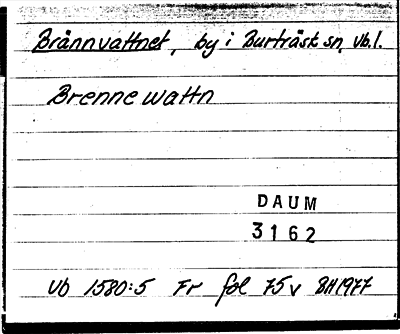 Brännvattnet, by i Burträsk sn, Vb.l.
Brenne wattn
DAUM
3162
Vb 1580:5 Fr fol 75v BH1977